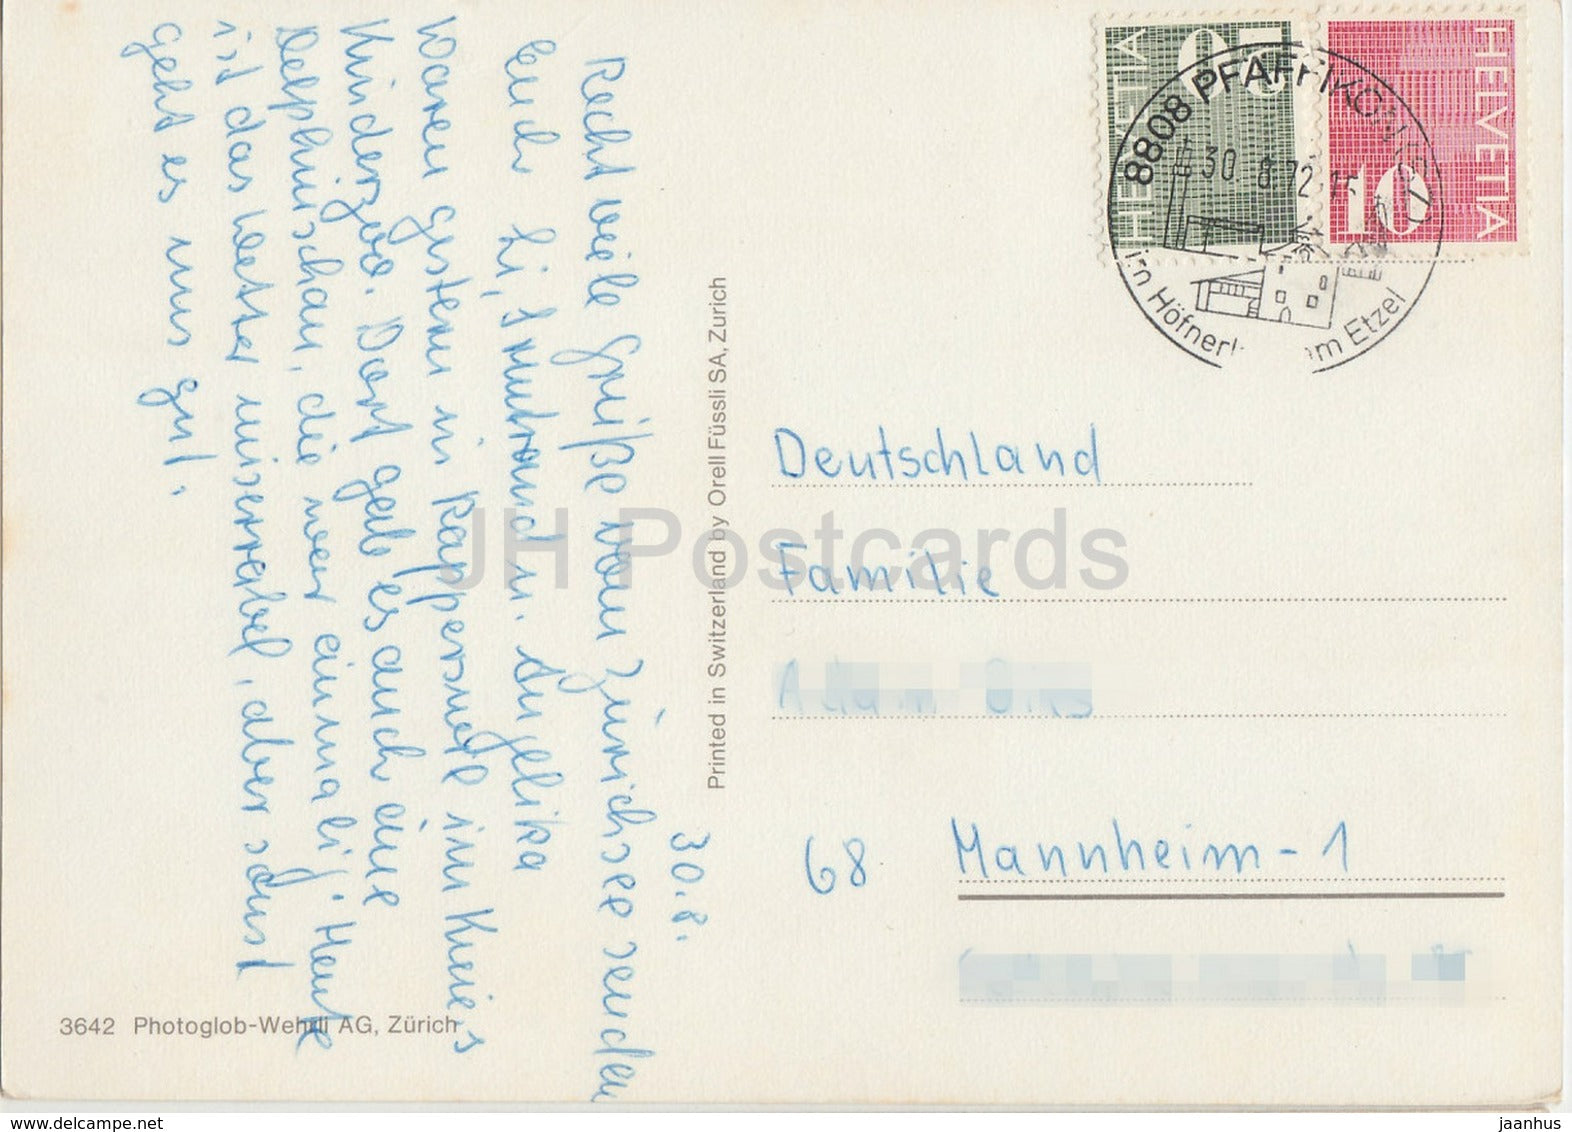 30.8.
Recht viele Grüße vom Zürichsee senden
Euch Li, u. Angelika
Waren gestern in Rapperswil im Knie's
Kinderzoo. Dort gab es auch eine
Delphinschau, die war einmalig. Heute
ist das Wetter miserabel, aber sonst
geht es uns gut.
3642 Photoglob-Wehrli AG, Zürich
Printed in Switzerland by Orell Füssli SA, Zurich
HELVETIA 05
HELVETIA 10
8808 PFÄFFIKON (SZ)
30 8 72
am Etzel
Deutschland
Familie
68 Mannheim-1
JH Postcards
www.delcampe.net
jaanhus